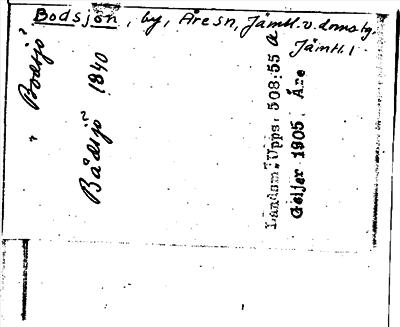 Bodsjön, by, Åre sn, Jämtl. v. domsg.
Jämtl. l
Bodsjö
Bådsjö 1840
Landsm. Upps. 508:55 a
Geijer 1905. Åre